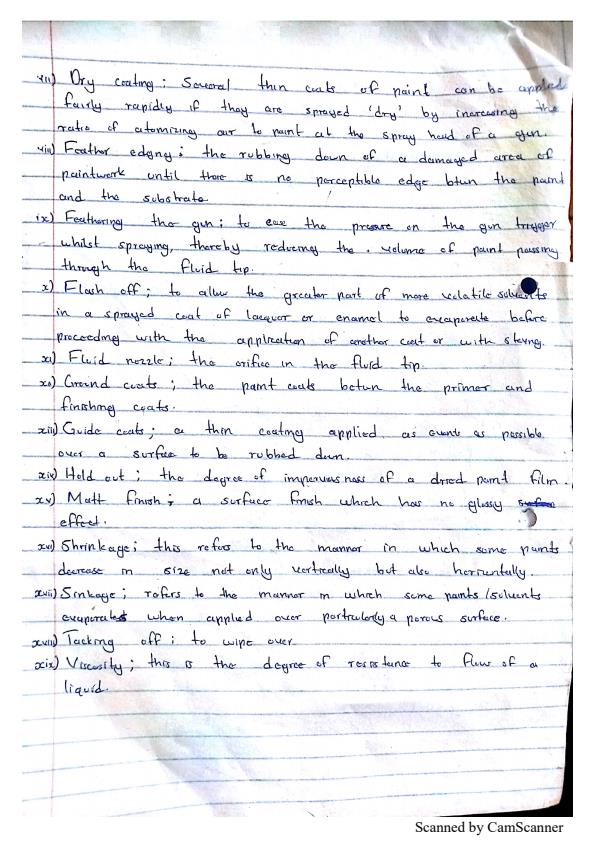 vii) Dry coating : Several thin coats of paint can be applied
fairly rapidly if they are sprayed 'dry' by increasing the
ratio of atomizing air to paint at the spray head of a gun.
viii) Feather edging ; the rubbing down of a damaged area of
paintwork until there is no perceptible edge btwn the paint
and the substrate.
ix) Feathering the gun ; to ease the pressure on the gun trigger
whilst spraying, thereby reducing the volume of paint passing
through the fluid tip.
x) Flash off ; to allow the greater part of more volatile solvents
in a sprayed coat of lacquor or enamel to evaporate before
proceeding with the application of another coat or with stoving.
xi) Fluid nozzle ; the orifice in the fluid tip.
xii) Ground coats ; the paint coats betwn the primer and
finishing coats.
xiii) Guide coats ; a thin coating applied as evenly as possible
over a surface to be rubbed down.
xiv) Hold out ; the degree of imperviousness of a dried paint film.
xv) Matt finish ; a surface finish which has no glossy surface
effect.
xvi) Shrinkage ; this refers to the manner in which some paints
decrease in size not only vertically but also horizontally.
xvii) Sinkage ; refers to the manner in which some paints/solvents
evaporates when applied over particularly a porous surface.
xviii) Tacking off ; to wipe over
xix) Viscosity ; this is the degree of resistance to flow of a
liquid.
Scanned by CamScanner